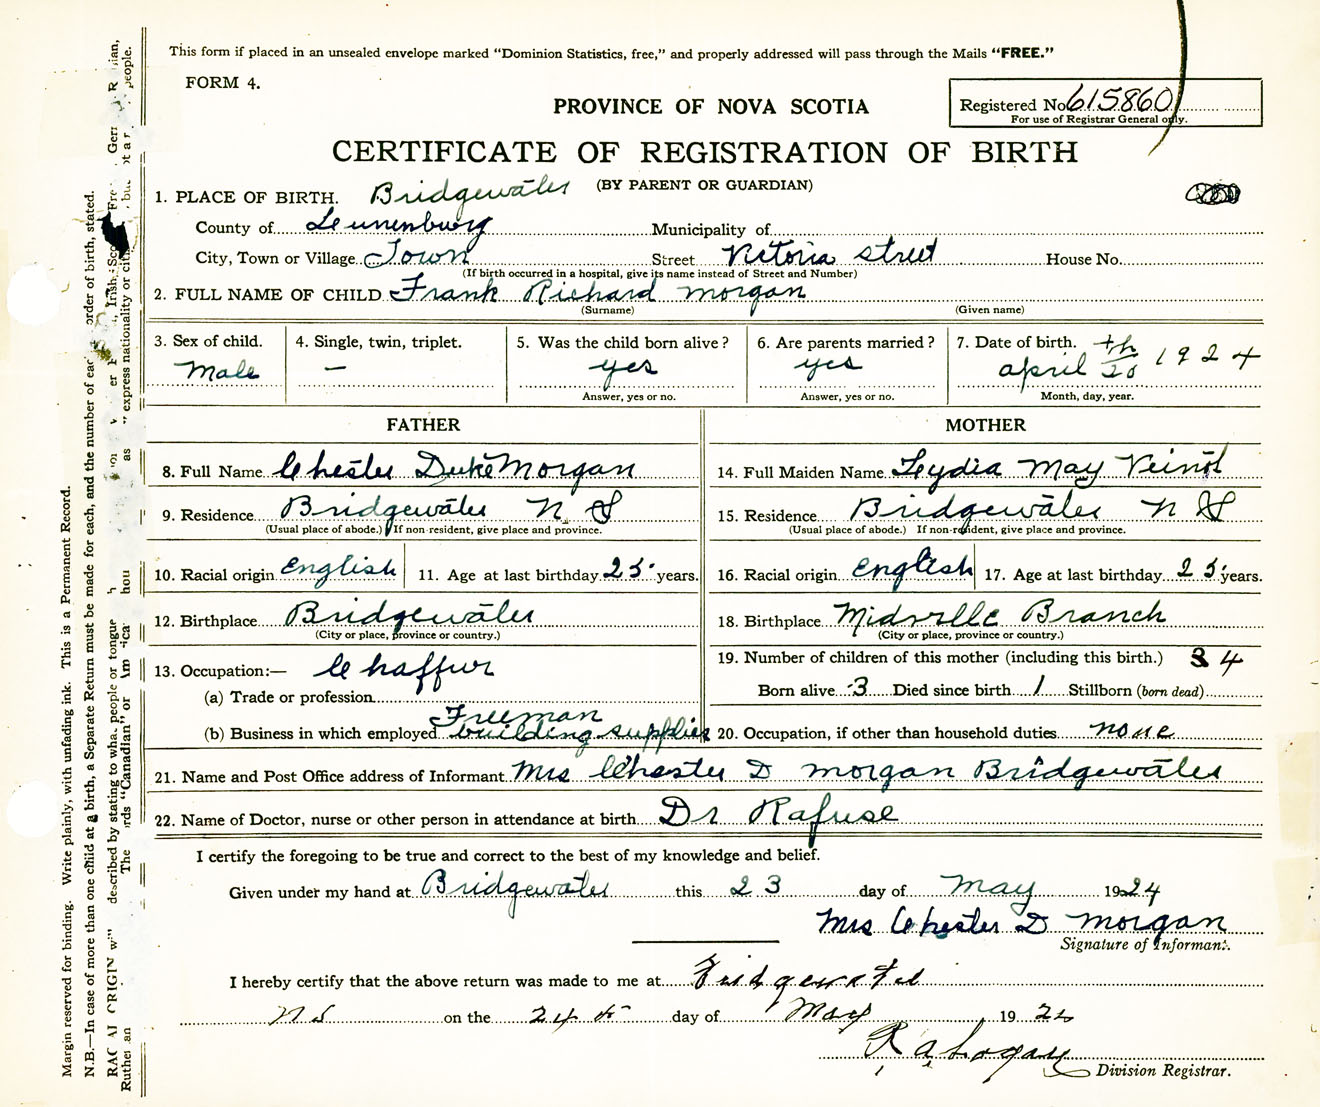 This form if placed in an unsealed envelope marked "Dominion Statistics, free," and properly addressed will pass through the Mails "FREE."
FORM 4.
PROVINCE OF NOVA SCOTIA
Registered No. 615860
For use of Registrar General only.
CERTIFICATE OF REGISTRATION OF BIRTH
(BY PARENT OR GUARDIAN)
1. PLACE OF BIRTH. Bridgewater
County of Lunenburg Municipality of
City, Town or Village Town Street Victoria Street House No.
(If birth occurred in a hospital, give its name instead of Street and Number)
2. FULL NAME OF CHILD Frank Richard Morgan
(Surname) (Given name)
3. Sex of child. 4. Single, twin, triplet. 5. Was the child born alive? 6. Are parents married? 7. Date of birth.
Male — yes yes april 20th 1924
Answer, yes or no. Answer, yes or no. Month, day, year.
FATHER MOTHER
8. Full Name Chester Duke Morgan 14. Full Maiden Name Leydia May Veinot
9. Residence Bridgewater N S 15. Residence Bridgewater N S
(Usual place of abode.) If non-resident, give place and province. (Usual place of abode.) If non-resident, give place and province.
10. Racial origin English 11. Age at last birthday 25 years. 16. Racial origin English 17. Age at last birthday 25 years.
12. Birthplace Bridgewater 18. Birthplace Midville Branch
(City or place, province or country.) (City or place, province or country.)
13. Occupation:— Chaffur 19. Number of children of this mother (including this birth.) 4
(a) Trade or profession Born alive 3 Died since birth 1 Stillborn (born dead)
Freeman
(b) Business in which employed building supplies 20. Occupation, if other than household duties none
21. Name and Post Office address of Informant Mrs Chester D Morgan Bridgewater
22. Name of Doctor, nurse or other person in attendance at birth Dr Rafuse
I certify the foregoing to be true and correct to the best of my knowledge and belief.
Given under my hand at Bridgewater this 23 day of May 1924
Mrs Chester D Morgan
Signature of Informant.
I hereby certify that the above return was made to me at Bridgewater
NS on the 24th day of May 1924
Division Registrar.
Margin reserved for binding. Write plainly, with unfading ink. This is a Permanent Record.
N.B.—In case of more than one child at a birth, a Separate Return must be made for each, and the number of each order of birth, stated.
described by stating to what people or tongue
"Canadian" or
express nationality or